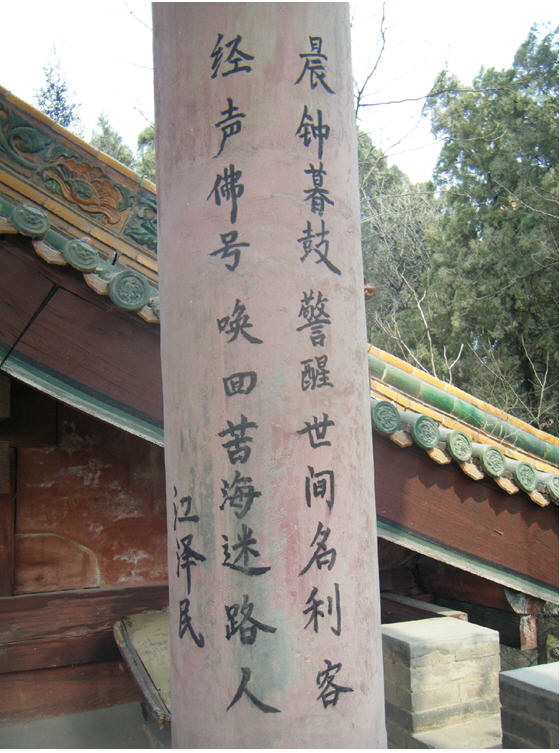 晨钟暮鼓警醒世间名利客
经声佛号唤回苦海迷路人
江泽民